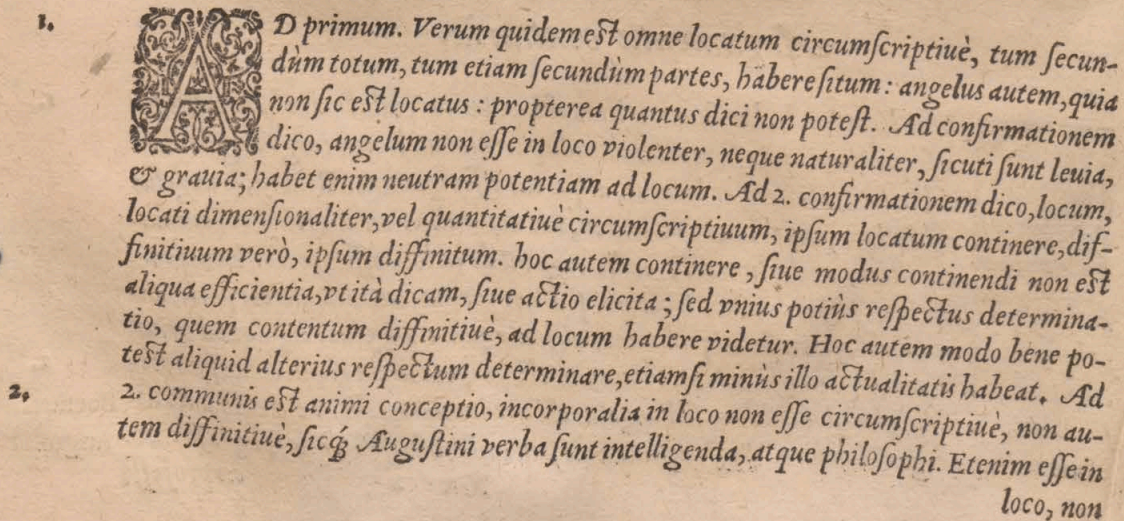 1. AD primum. Verum quidem est omne locatum circumſcriptiuè, tum ſecun-
dùm totum, tum etiam ſecundùm partes, habere ſitum: angelus autem, quia
non ſic est locatus: propterea quantus dici non poteſt. Ad confirmationem
dico, angelum non eſſe in loco violenter, neque naturaliter, ſicuti ſunt leuia,
& grauia; habet enim neutram potentiam ad locum. Ad 2. confirmationem dico, locum,
locati dimenſionaliter, vel quantitatiuè circumſcriptiuum, ipſum locatum continere, dif-
finitiuum verò, ipſum diffinitum. hoc autem continere, ſiue modus continendi non est
aliqua efficientia, vt ità dicam, ſiue actio elicita; ſed vnius potiùs reſpectus determina-
tio, quem contentum diffinitiuè, ad locum habere videtur. Hoc autem modo bene po-
test aliquid alterius reſpectum determinare, etiamſi minùs illo actualitatis habeat. Ad
2. 2. communis est animi conceptio, incorporalia in loco non eſſe circumſcriptiuè, non au-
tem diffinitiuè, ſicq́; Auguſtini verba ſunt intelligenda, atque philoſophi. Etenim eſſe in
loco, non